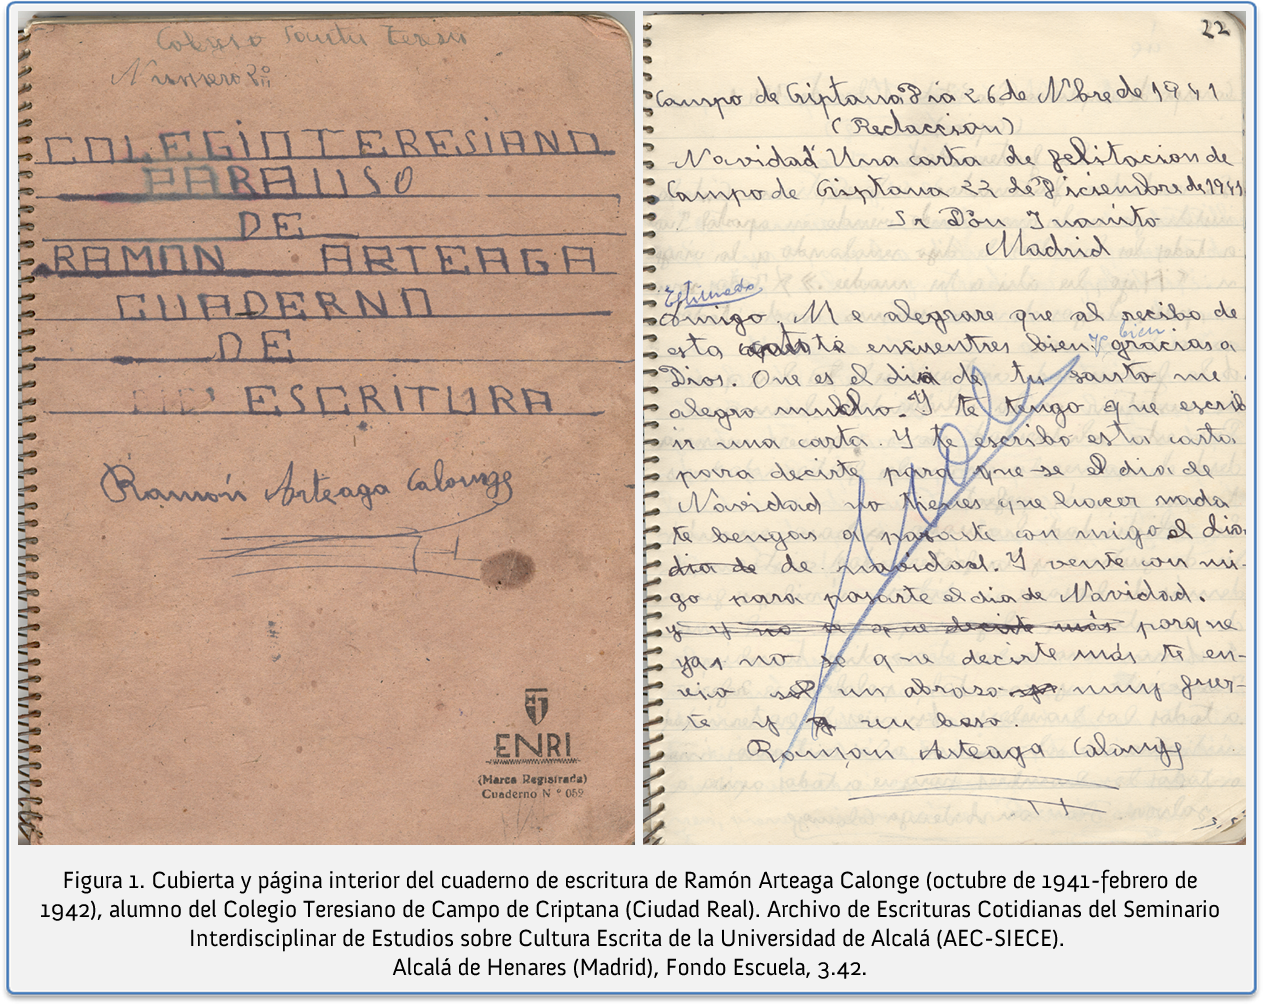 Colegio Santa Teresa
Numero
COLEGIO TERESIANO
PARA USO
DE
RAMON ARTEAGA
CUADERNO
DE
ESCRITURA
Ramón Arteaga Calonge
ENRI
(Marca Registrada)
Cuaderno N.º 052
22
Campo de Criptana Dia 26 de Nbre de 1941
(Redaccion)
Navidad Una carta de felitacion de
Campo de Criptana 22 de Diciembre de 1941
Sr Don Juanito
Madrid
Estimado
amigo, Me alegrare que al recibo de
esta te encuentres bien, Yo bien gracias a
Dios. Que es el dia de tu santo me
alegro mucho. Y te tengo que escrib
ir una carta. Y te escribo esta carta
para decirte para que se el dia de
Navidad no tienes que hacer nada
te bengas a pasarte con migo el dia
dia de de navidad. Y vente con mi-
go para pasarte el dia de Navidad.
y y no se que decirte más porque
ya no se que decirte más te en-
vio un abraso muy fuer-
te y un beso.
Ramón Arteaga Calonge
Figura 1. Cubierta y página interior del cuaderno de escritura de Ramón Arteaga Calonge (octubre de 1941-febrero de
1942), alumno del Colegio Teresiano de Campo de Criptana (Ciudad Real). Archivo de Escrituras Cotidianas del Seminario
Interdisciplinar de Estudios sobre Cultura Escrita de la Universidad de Alcalá (AEC-SIECE).
Alcalá de Henares (Madrid), Fondo Escuela, 3.42.